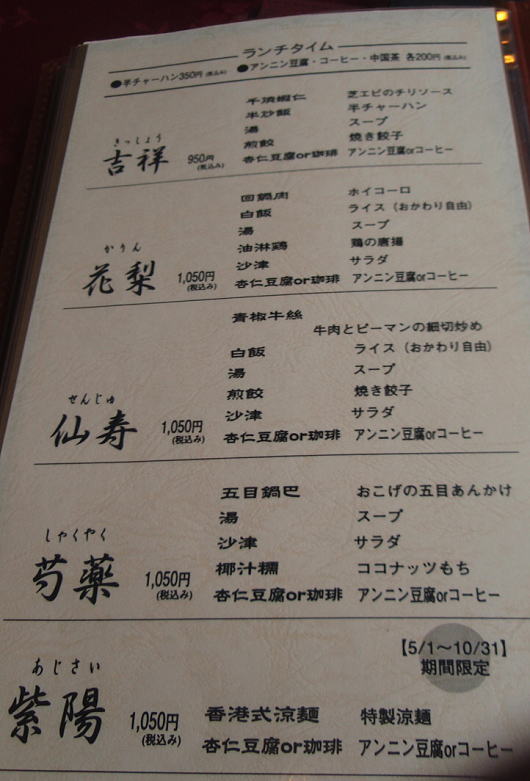 ランチタイム
●半チャーハン350円(税込み) ●アンニン豆腐・コーヒー・中国茶 各200円(税込み)
干焼蝦仁 芝エビのチリソース
半炒飯 半チャーハン
湯 スープ
煎餃 焼き餃子
きっしょう
吉祥 950円(税込み) 杏仁豆腐or珈琲 アンニン豆腐orコーヒー
回鍋肉 ホイコーロ
白飯 ライス(おかわり自由)
湯 スープ
油淋鶏 鶏の唐揚
かりん
沙津 サラダ
花梨 1,050円(税込み) 杏仁豆腐or珈琲 アンニン豆腐orコーヒー
青椒牛絲
牛肉とピーマンの細切炒め
白飯 ライス(おかわり自由)
湯 スープ
煎餃 焼き餃子
せんじゅ
沙津 サラダ
仙寿 1,050円(税込み) 杏仁豆腐or珈琲 アンニン豆腐orコーヒー
五目鍋巴 おこげの五目あんかけ
湯 スープ
しゃくやく
沙津 サラダ
椰汁糯 ココナッツもち
芍薬 1,050円(税込み) 杏仁豆腐or珈琲 アンニン豆腐orコーヒー
【5/1～10/31】
期間限定
あじさい
紫陽 1,050円(税込み) 香港式涼麺 特製涼麺
杏仁豆腐or珈琲 アンニン豆腐orコーヒー